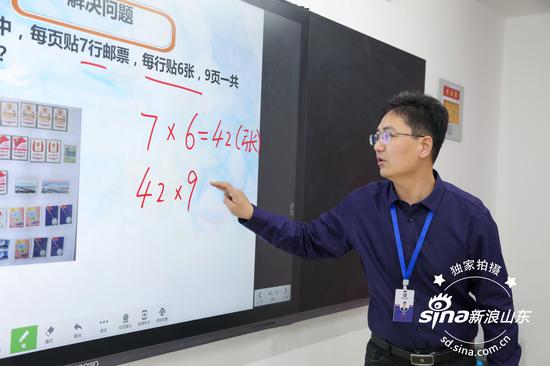 解决问题
中，每页贴7行邮票，每行贴6张，9页一共
？
7×6=42(张)
42×9
独家拍摄
sina新浪山东
sd.sina.com.cn